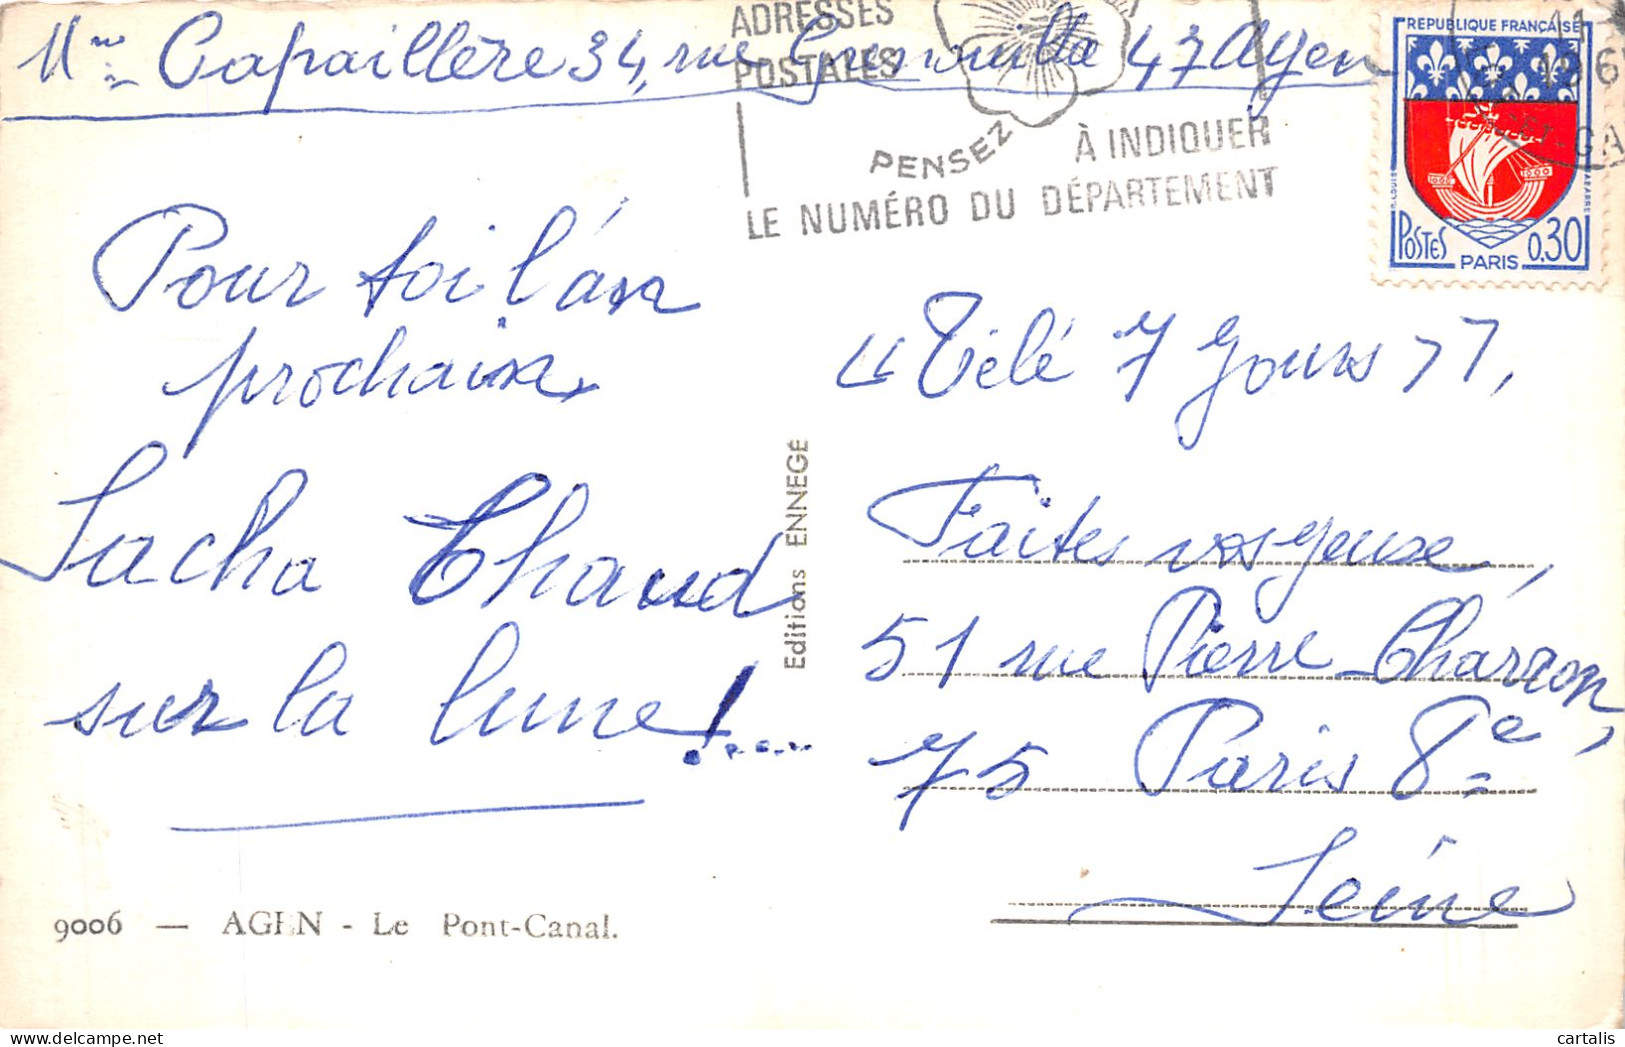 Mme Capaillère 34, rue Grenouilla 47 Agen
ADRESSES
POSTALES
PENSEZ
À INDIQUER
LE NUMÉRO DU DÉPARTEMENT
REPUBLIQUE FRANÇAISE
POSTES
0,30
PARIS
Pour toi l'an
prochain
Sacha Thaud
sur la lune!.....
« Télé 7 Jours »,
Faites vos jeux,
51 rue Pierre Charron,
75 Paris 8e
Seine
Editions ENNEGÉ
9006 — AGEN - Le Pont-Canal.
cartalis